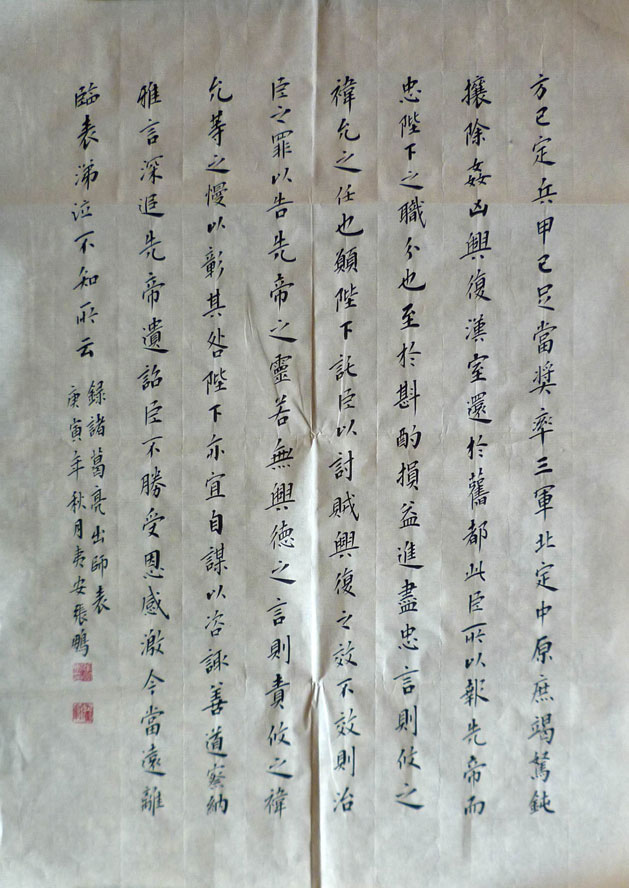 方已定兵甲已足當奨率三軍北定中原庶竭駑鈍
攘除姦凶興復漢室還於舊都此臣所以報先帝而
忠陛下之職分也至於斟酌損益進盡忠言則攸之
禕允之任也願陛下託臣以討賊興復之效不效則治
臣之罪以告先帝之靈若無興德之言則責攸之禕
允等之慢以彰其咎陛下亦宜自謀以咨諏善道察納
雅言深追先帝遺詔臣不勝受恩感激今當遠離
臨表涕泣不知所云
録諸葛亮出師表
庚寅年秋月夷安張鵬